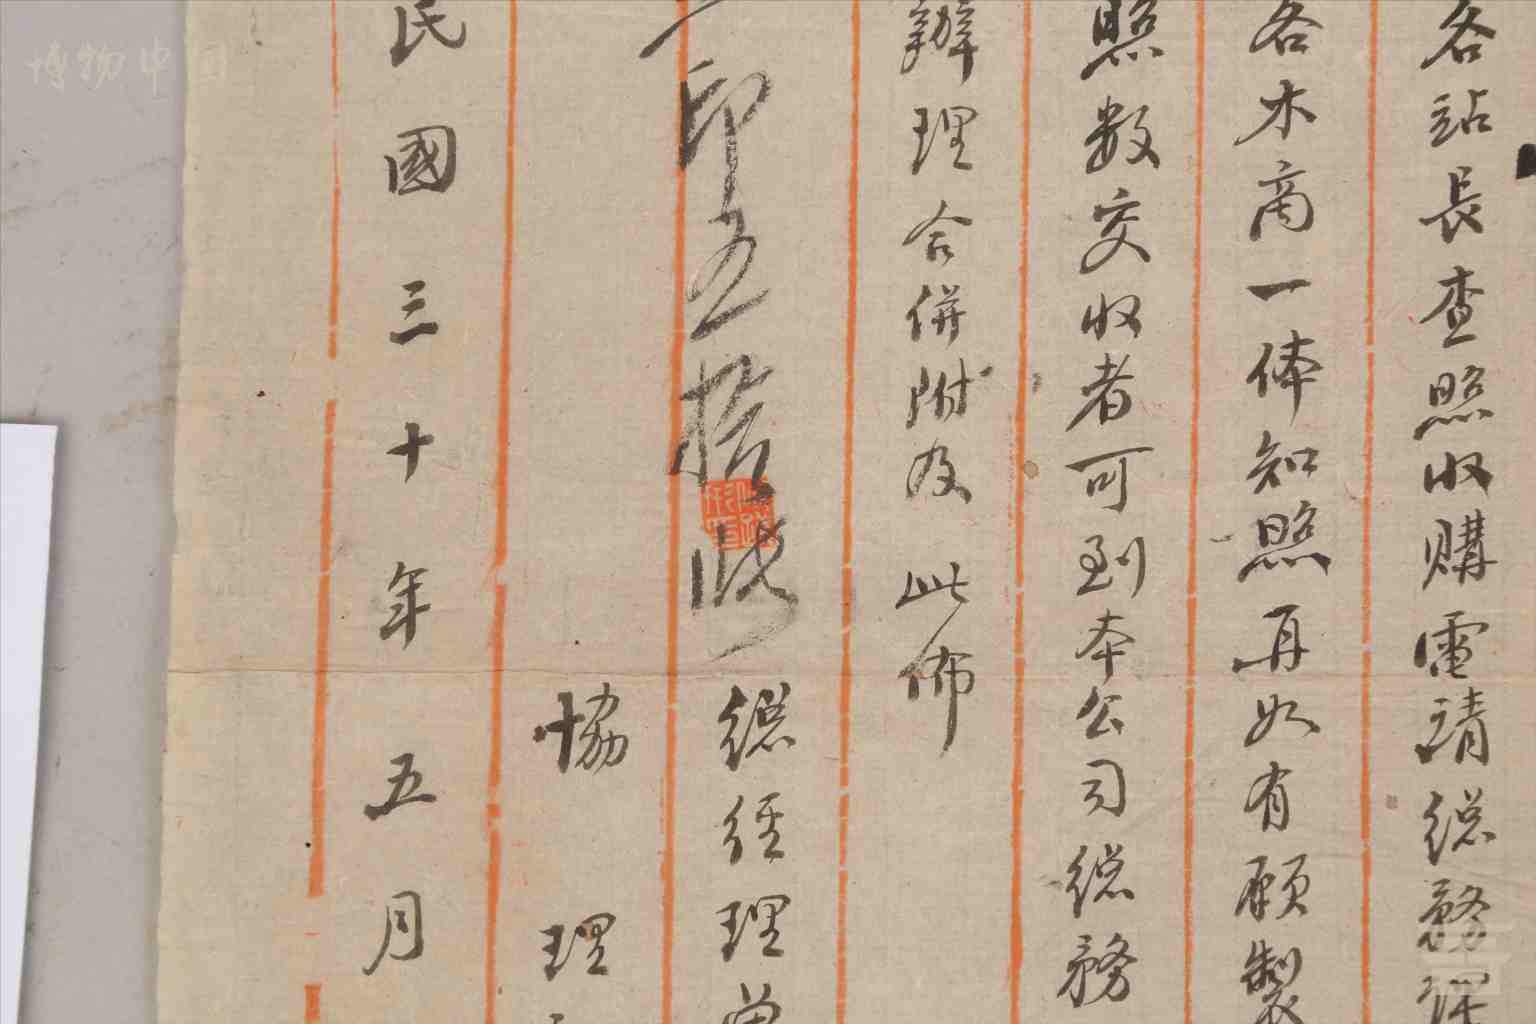 各站長查照收購電請總務課
各木商一俸知照再如有願製
照数交收者可到本公司總務
辦理合併附及 此佈
印五拾
總經理曾
協理
民國三十年五月
博物中国